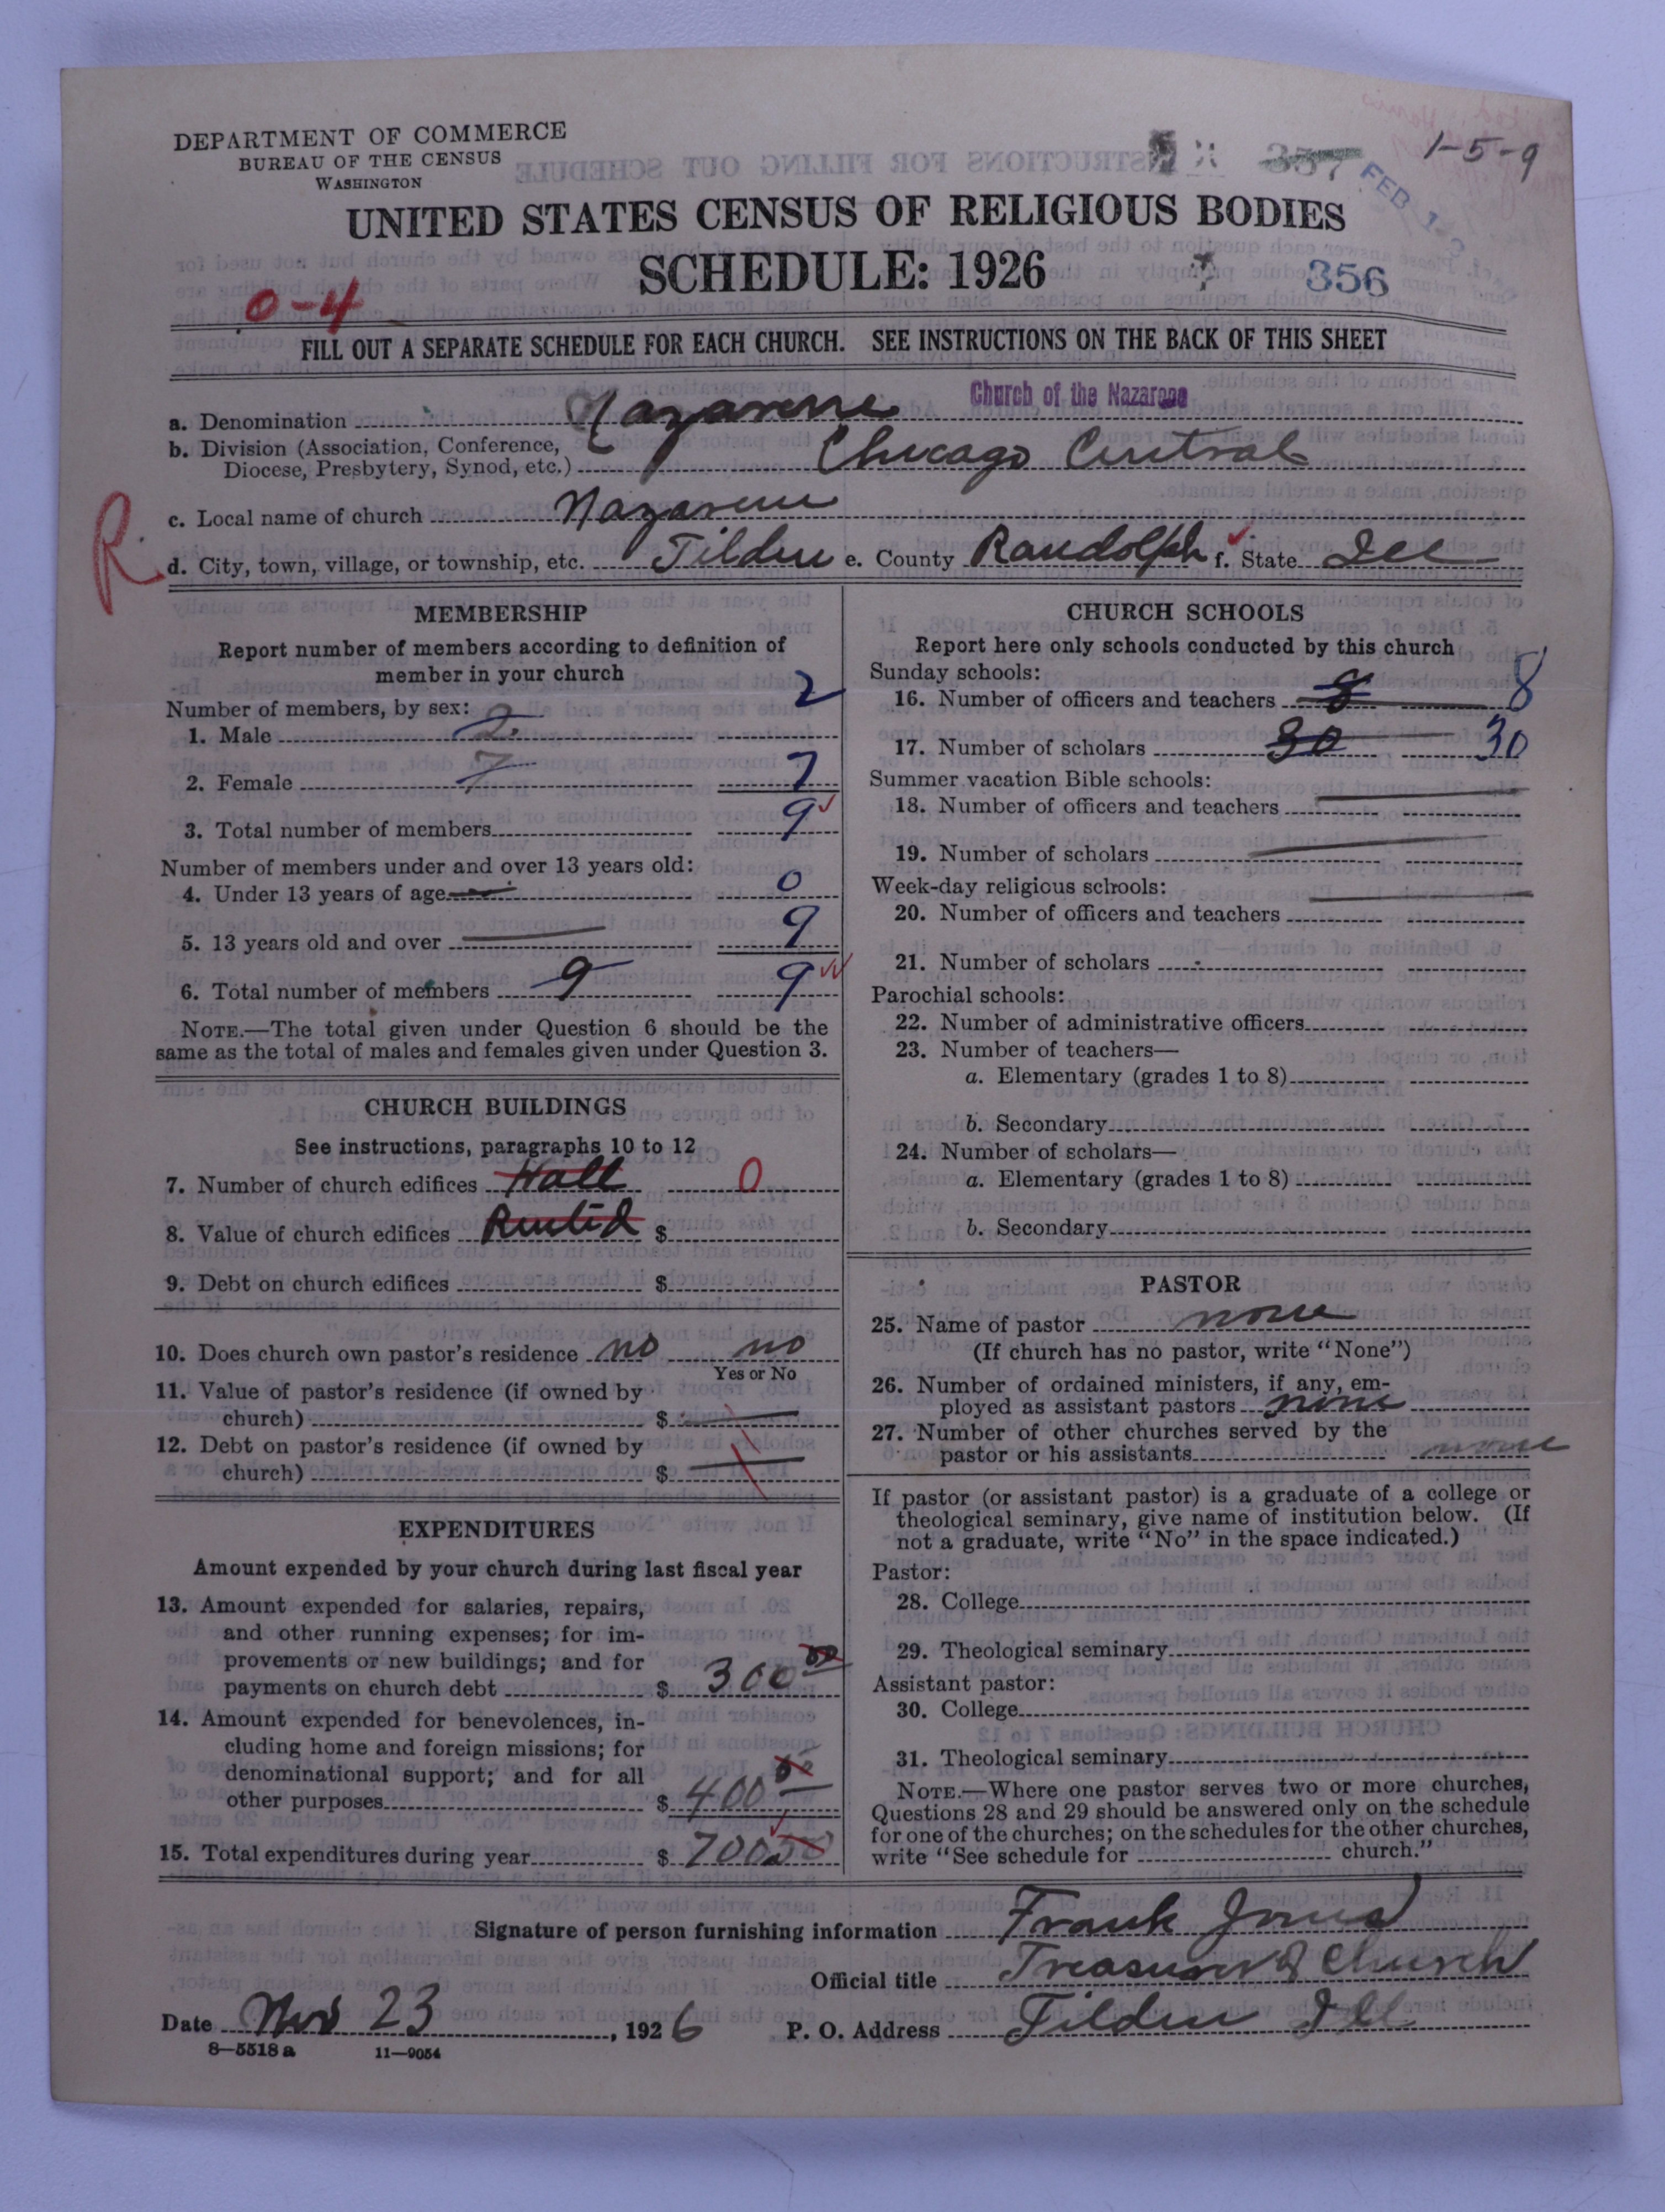 DEPARTMENT OF COMMERCE
BUREAU OF THE CENSUS
WASHINGTON
1-5-9
357
FEB 1
UNITED STATES CENSUS OF RELIGIOUS BODIES
SCHEDULE: 1926
356
0-4
FILL OUT A SEPARATE SCHEDULE FOR EACH CHURCH. SEE INSTRUCTIONS ON THE BACK OF THIS SHEET
a. Denomination Nazarene Church of the Nazarene
b. Division (Association, Conference,
Diocese, Presbytery, Synod, etc.) Chicago Central
c. Local name of church Nazarene
R
d. City, town, village, or township, etc. Tilden e. County Randolph f. State Ill
MEMBERSHIP
Report number of members according to definition of
member in your church
Number of members, by sex:
1. Male 2 2
2. Female 7 7
3. Total number of members 9
Number of members under and over 13 years old:
4. Under 13 years of age 0
5. 13 years old and over 9
6. Total number of members 9 9
NOTE.—The total given under Question 6 should be the
same as the total of males and females given under Question 3.
CHURCH BUILDINGS
See instructions, paragraphs 10 to 12
7. Number of church edifices Hall 0
8. Value of church edifices Rented $
9. Debt on church edifices $
10. Does church own pastor's residence no no
Yes or No
11. Value of pastor's residence (if owned by
church) $
12. Debt on pastor's residence (if owned by
church) $
EXPENDITURES
Amount expended by your church during last fiscal year
13. Amount expended for salaries, repairs,
and other running expenses; for im-
provements or new buildings; and for
payments on church debt $ 300 00
14. Amount expended for benevolences, in-
cluding home and foreign missions; for
denominational support; and for all
other purposes $ 400 00
15. Total expenditures during year $ 700 00
CHURCH SCHOOLS
Report here only schools conducted by this church
Sunday schools:
16. Number of officers and teachers 8 8
17. Number of scholars 30 30
Summer vacation Bible schools:
18. Number of officers and teachers
19. Number of scholars
Week-day religious schools:
20. Number of officers and teachers
21. Number of scholars
Parochial schools:
22. Number of administrative officers
23. Number of teachers—
a. Elementary (grades 1 to 8)
b. Secondary
24. Number of scholars—
a. Elementary (grades 1 to 8)
b. Secondary
PASTOR
25. Name of pastor none
(If church has no pastor, write "None")
26. Number of ordained ministers, if any, em-
ployed as assistant pastors none
27. Number of other churches served by the
pastor or his assistants none
If pastor (or assistant pastor) is a graduate of a college or
theological seminary, give name of institution below. (If
not a graduate, write "No" in the space indicated.)
Pastor:
28. College
29. Theological seminary
Assistant pastor:
30. College
31. Theological seminary
NOTE.—Where one pastor serves two or more churches,
Questions 28 and 29 should be answered only on the schedule
for one of the churches; on the schedules for the other churches,
write "See schedule for church."
Signature of person furnishing information Frank Jones
Official title Treasurer of Church
Date Nov 23, 1926 P. O. Address Tilden Ill
8—5518 a 11—9054